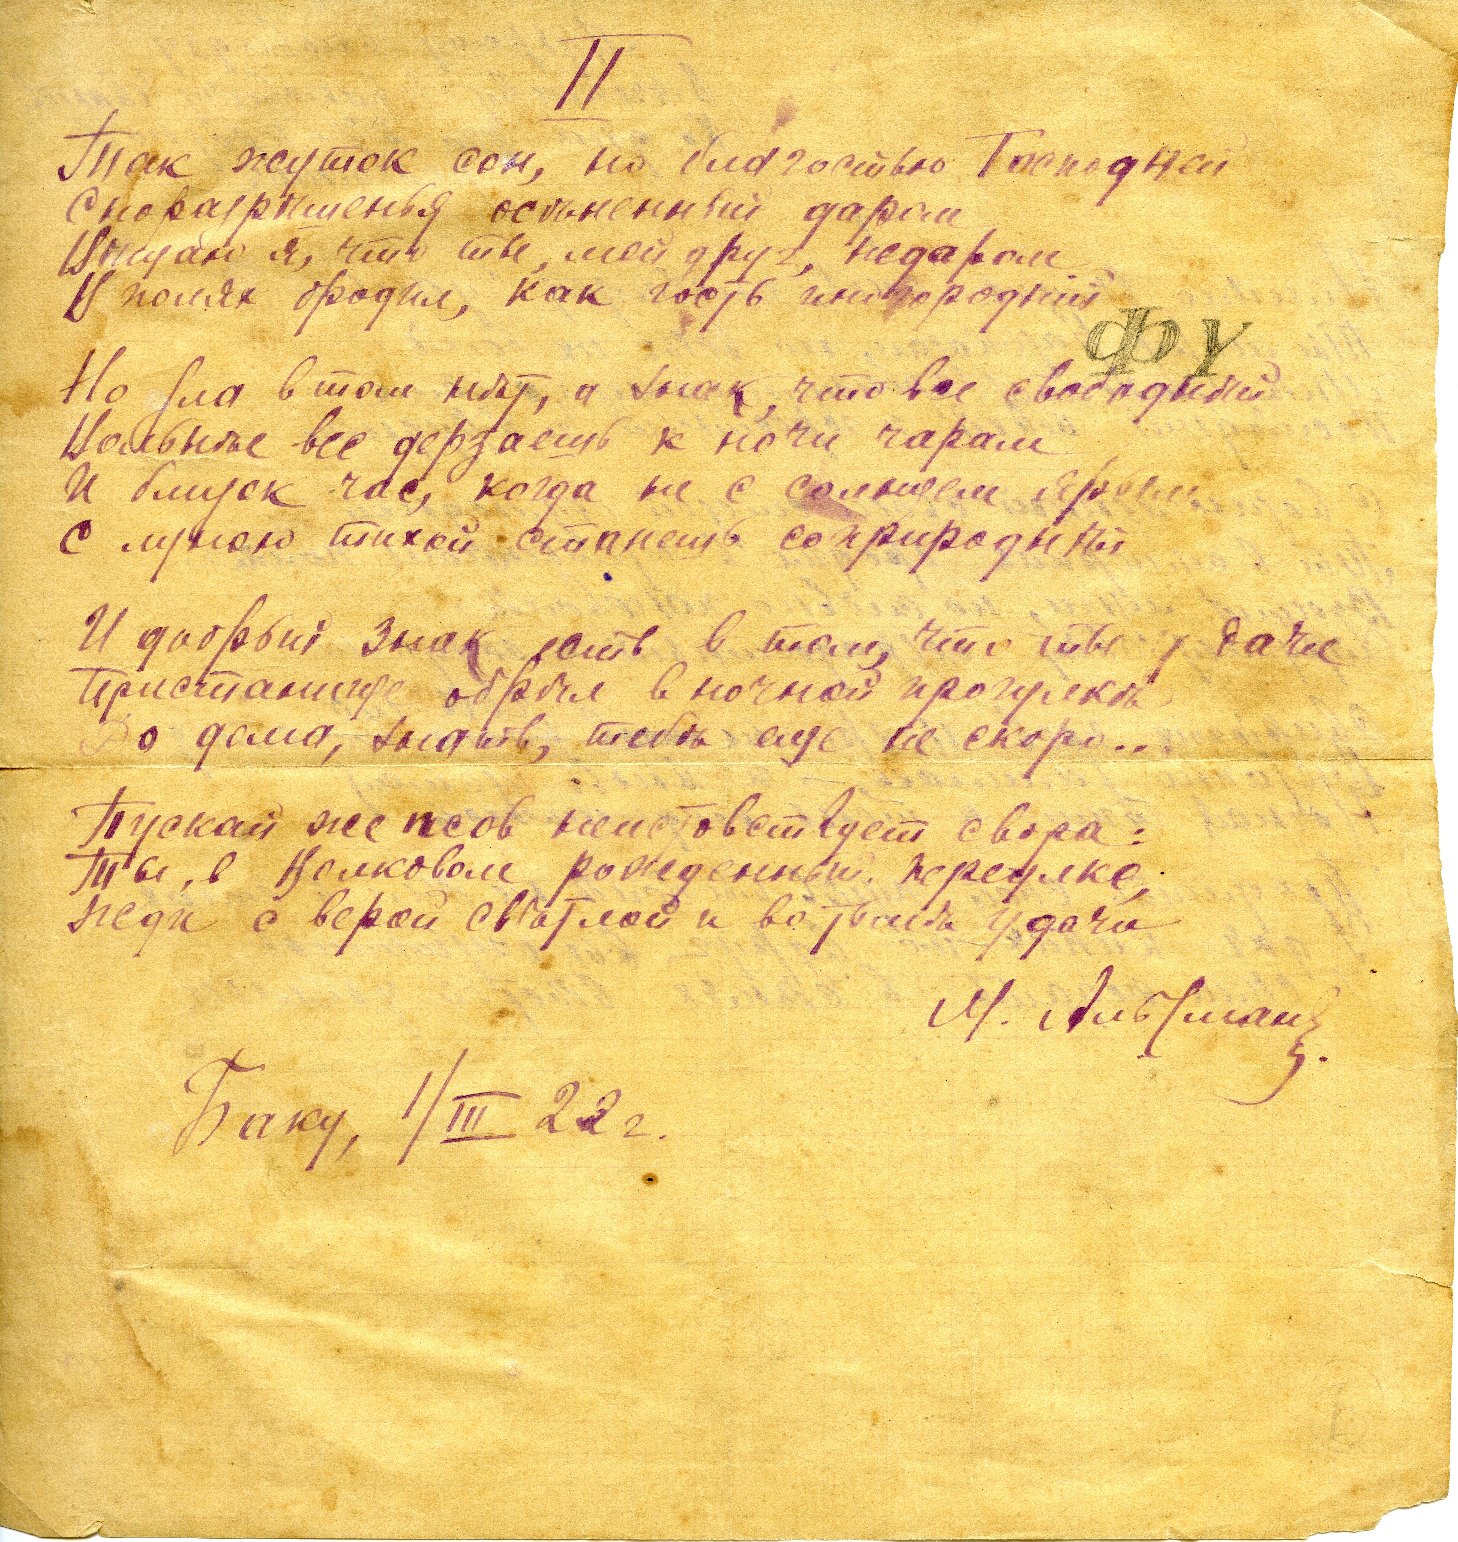 II
Так жуток сон, но благостью Господней
Сноразрѣшенья осѣненный даром
Вѣщаю я, что ты, мой друг, недаром
В полях бродил, как гость инородний
фу
Но зла в том нѣт, а знак, что все свободнѣй
Вольнѣе все дерзаешь к ночи чарам
И близок час, когда не с солнцем ярым
С луною тихой станешь соприродный
И добрый знак есть в том, что ты у дачи
Пристанище обрѣл в ночной прогулкѣ
До дома, знать, тебѣ еще не скоро..
Пускай же псов неистовствует свора:
Ты, в Волковом рожденный переулке,
Жди с верой свѣтлой и во тьмѣ удачи
М. Альтман.
Баку, 1/III 22 г.